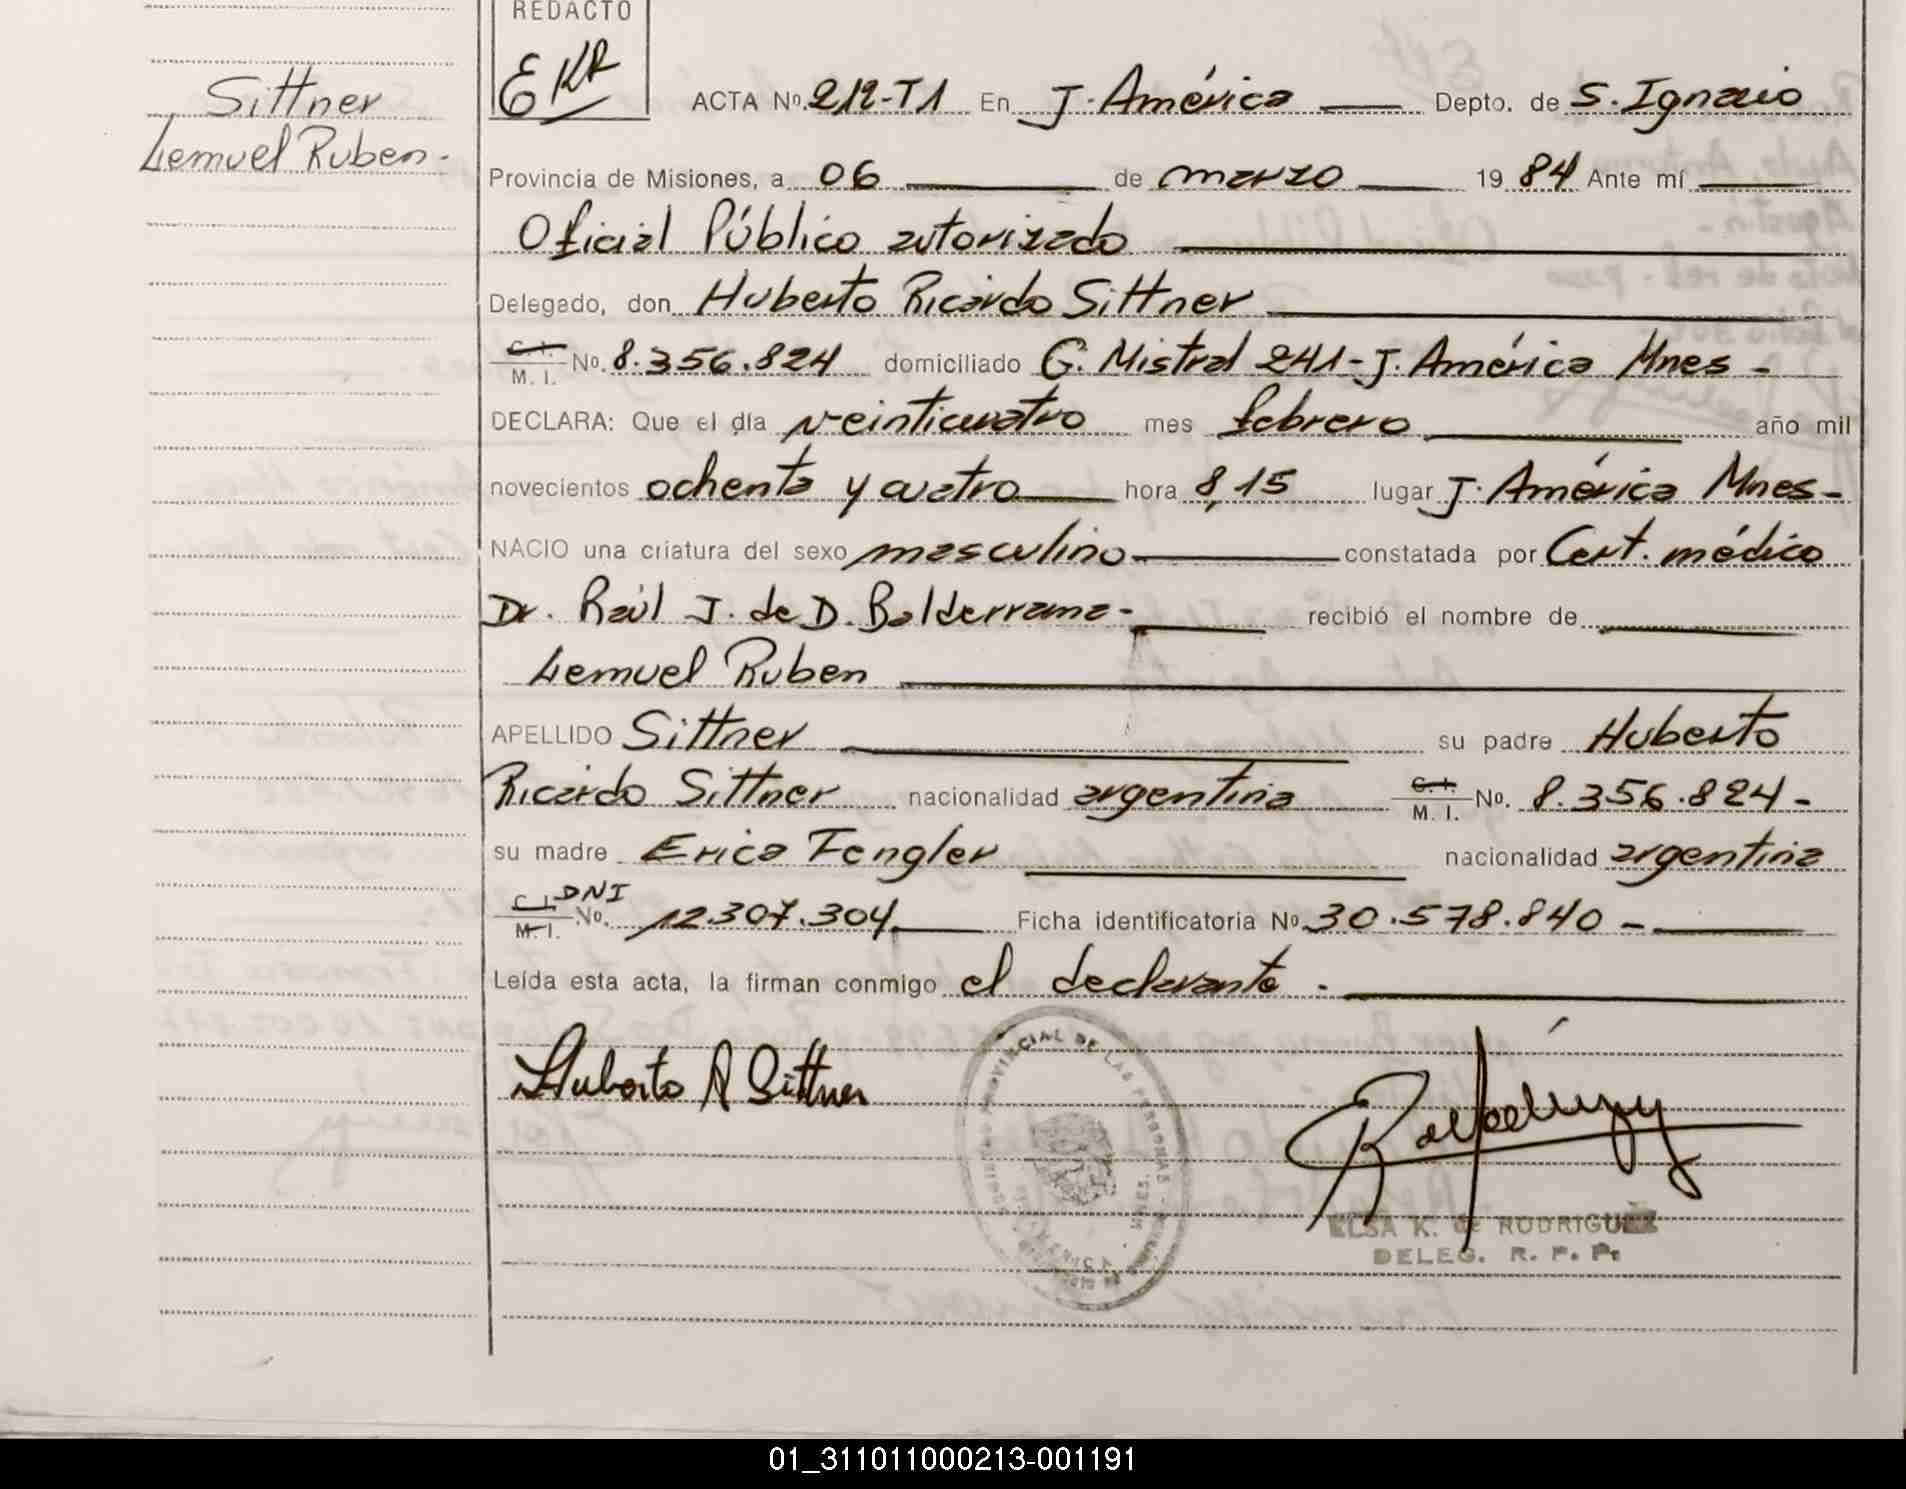 REDACTO
EKR
Sittner
Lemuel Ruben.-
ACTA Nº. 212-T1 En J. América Depto. de S. Ignacio
Provincia de Misiones, a 06 de marzo 19 84 Ante mí
Oficial Público autorizado
Delegado, don Huberto Ricardo Sittner
C. I. M. I. Nº. 8.356.824 domiciliado G. Mistral 241-J. América Mnes -
DECLARA: Que el día veinticuatro mes febrero año mil
novecientos ochenta y cuatro hora 8,15 lugar J. América Mnes-
NACIO una criatura del sexo masculino constatada por Cert. médico
Dr. Raúl J. de D. Balderrama- recibió el nombre de
Lemuel Ruben
APELLIDO Sittner su padre Huberto
Ricardo Sittner nacionalidad argentina C. I. M. I. Nº. 8.356.824-
su madre Erica Fengler nacionalidad argentina
C. I. M. I. DNI Nº. 12.307.304 Ficha identificatoria Nº 30.578.840-
Leída esta acta, la firman conmigo el declarante.
Huberto R Sittner
PROVINCIAL DE LAS PERSONAS
MNES.
ELSA K. de RODRIGUEZ
DELEG. R. P. P.
01_311011000213-001191